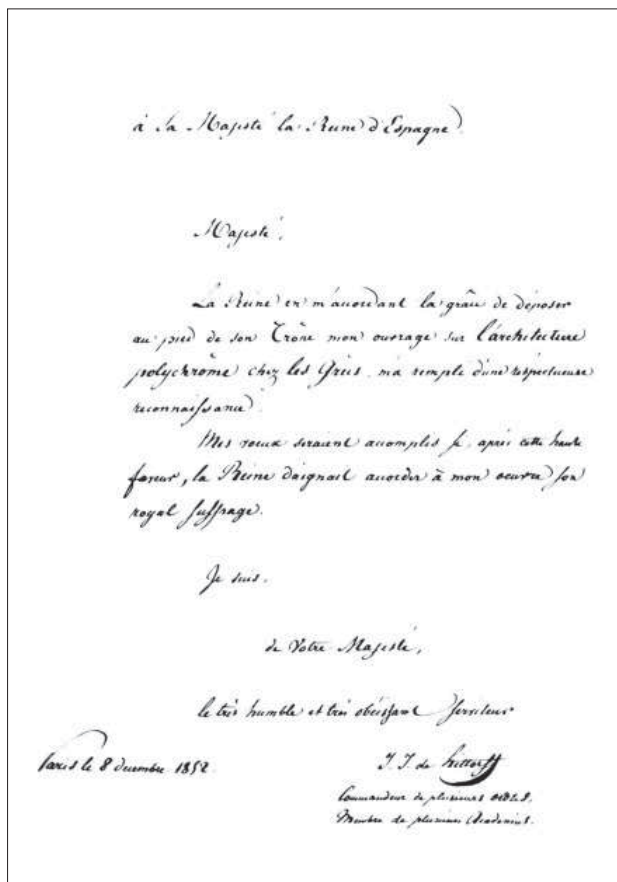 à Sa Majesté la Reine d'Espagne.
Majesté,
La Reine en m'accordant la grâce de déposer
au pied de son Trône mon ouvrage sur l'architecture
polychrôme chez les Grecs, m'a remple d'une respectueuse
reconnaissance.
Mes voeux seraient accomplis si, après cette haute
faveur, la Reine daignait accorder à mon oeuvre son
royal suffrage.
Je suis,
de Votre Majesté,
le très humble et très obéissant serviteur
Paris le 8 decembre 1852
J. J. de Hittorff
Commandeur de plusieurs ordres,
Membre de plusieurs Academies.